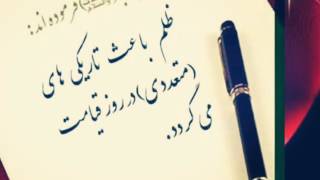 فرموده اند:
ظلم باعث تاریکی های
(متعددی) در روز قیامت
می گردد.